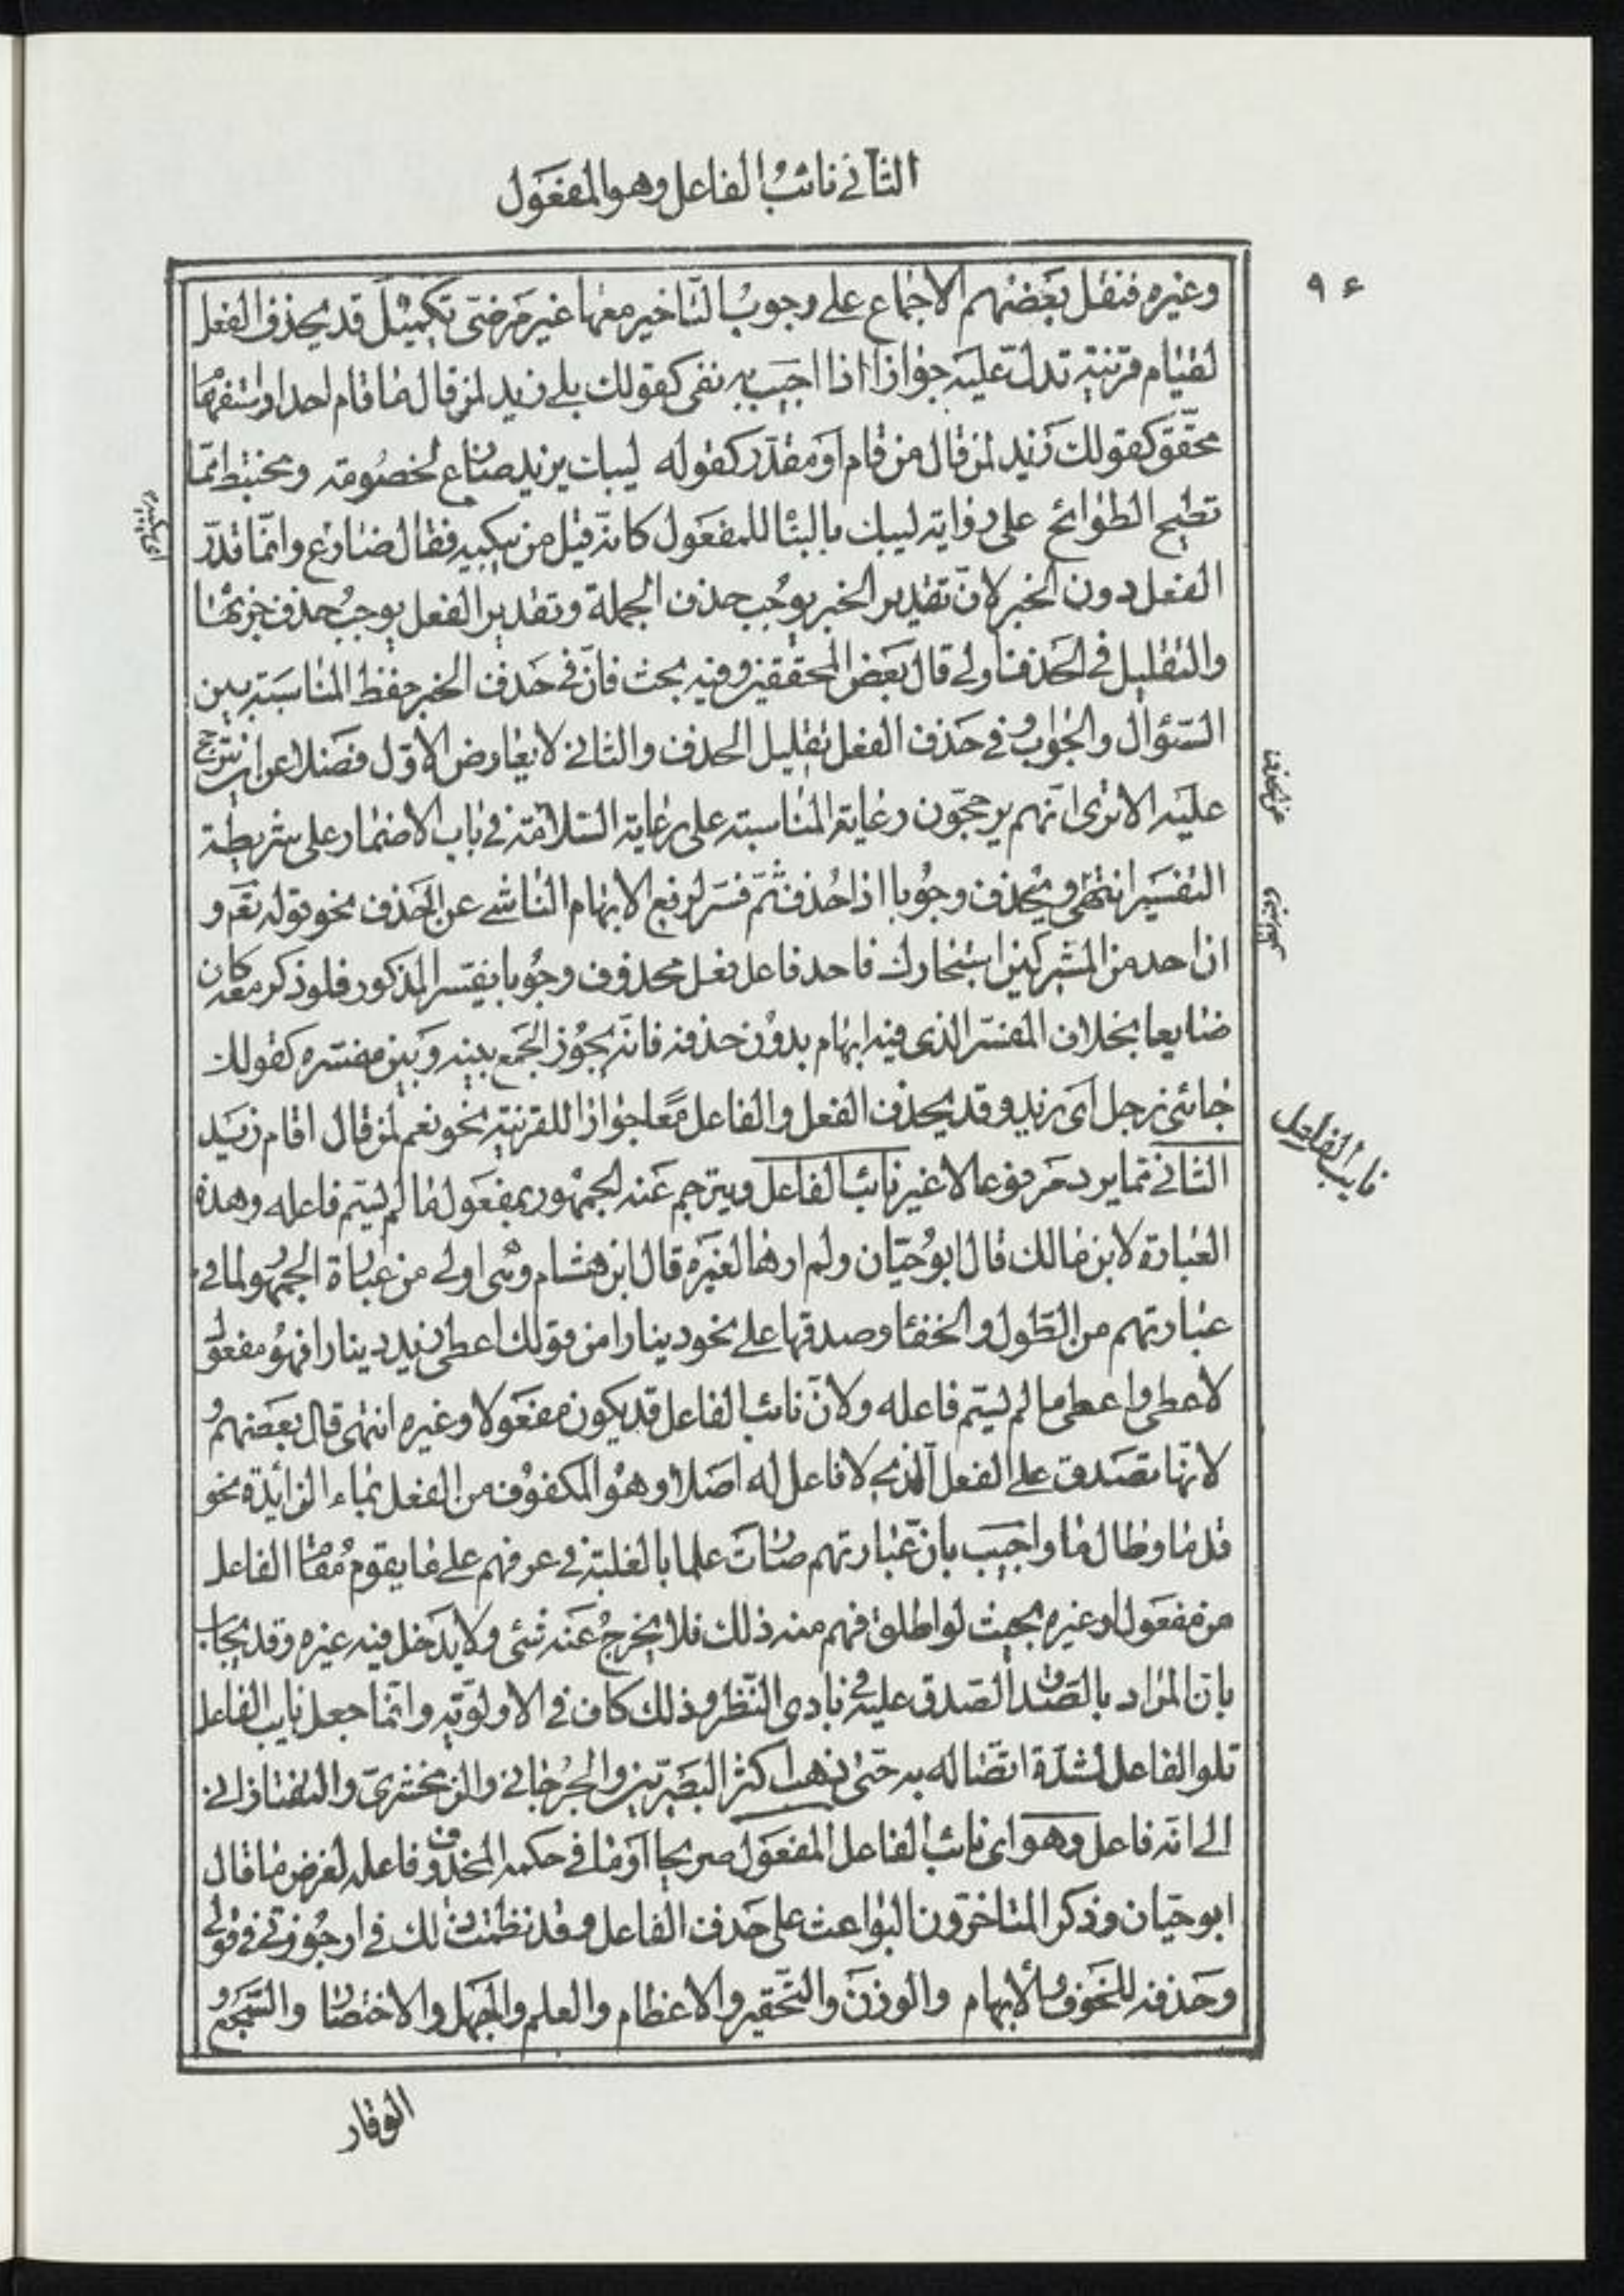 الثاني نائب الفاعل وهو المفعول
۹۶
وغيره فنقل بعضهم الاجماع على وجوب التاخير معها غير مرضيّ تكميل قد يحذف الفعل
لقيام قرينة تدلّ عليه جوازا اذا اجيب به نفى كقولك بلى زيد لمن قال ما قام احد او استفهام
محقّق كقولك زيد لمن قال من قام او مقدّر كقوله ليبك يزيد ضارع لخصومة ومختبط ممّا
تطيح الطوائح على رواية ليبك بالبناء للمفعول كانّه قيل من يبكيه فقال ضارع وانّما قدّر
الفعل دون الخبر لانّ تقدير الخبر يوجب حذف الجملة وتقدير الفعل يوجب حذف جزئها
والتقليل في الحذف اولى قال بعض المحققين وفيه بحث فانّ في حذف الخبر حفظ المناسبة بين
السّؤال والجواب وفي حذف الفعل تقليل الحذف والثاني لا يعارض الاوّل فضلا عن ان يترجح
عليه الا ترى انّهم يرجحّون رعاية المناسبة على رعاية السّلامة في باب الاضمار على شريطة
التفسير انتهى ويحذف وجوبا اذا حذف ثمّ فسّر لرفع الابهام الناشي عن الحذف نحو قوله تعم و
ان احد من المشركين استجارك فاحد فاعل فعل محذوف وجوبا يفسّر المذكور فلو ذكر معه كان
ضايعا بخلاف المفسّر الذي فيه ابهام بدون حذفه فانّه يجوز الجمع بينه وبين مفسّره كقولك
جائني رجل اى زيد وقد يحذف الفعل والفاعل معًا جوازا للقرينة نحو نعم لمن قال اقام زيد
نايب الفاعل
الثاني ممّا يرد مرفوعا لا غير نائب الفاعل ويترجم عند الجمهور بمفعول ما لم يسّم فاعله وهذه
العبارة لابن مالك قال ابو حيّان ولم ارها لغيره قال ابن هشام وهى اولى من عبارة الجمهور لما في
عبارتهم من الطّول والخفاء وصدقها على نحو دينارا من قولك اعطى زيد دينارا فهو مفعول
لاعطى واعطى ما لم يسّم فاعله ولانّ نائب الفاعل قد يكون مفعولا وغيره انتهى قال بعضهم و
لانّها تصدق على الفعل الّذى لا فاعل له اصلا وهو المكفوف من الفعل بماء الزائدة نحو
قلما وطالما واجيب بانّ عبارتهم صارت علما بالغلبة في عرفهم على ما يقوم مقام الفاعل
من مفعول او غيره بحيث لو اطلق فهم منه ذلك فلا يخرج عنه شئ ولا يدخل فيه غيره وقد يجاب
بانّ المراد بالصّدق الصّدق عليه في بادى النّظر وذلك كاف في الاولويّة وانّما جعل نايب الفاعل
تلو الفاعل لشدّة اتّصاله به حتى ذهب اكثر البصريّين والجرجاني والزمخشرىّ والتفتازاني
الى انه فاعل وهو اى نائب الفاعل المفعول صريحا او ما في حكمه المحذوف فاعله لغرض ما قال
ابو حيّان وذكر المتاخرّون البواعث على حذف الفاعل وقد نظمت ذلك في ارجوزتي في قولي
وحذفه للخوف والابهام والوزن والتّحقير والاعظام والعلم والجهل والاختصار والسّجع و
الوقار